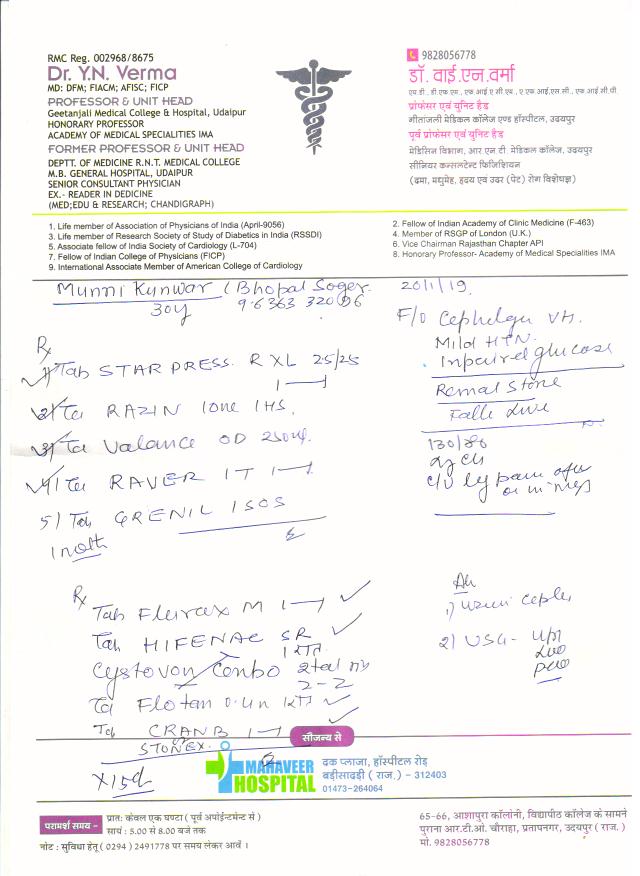 RMC Reg. 002968/8675
Dr. Y.N. Verma
MD: DFM; FIACM; AFISC; FICP
PROFESSOR & UNIT HEAD
Geetanjali Medical College & Hospital, Udaipur
HONORARY PROFESSOR
ACADEMY OF MEDICAL SPECIALITIES IMA
FORMER PROFESSOR & UNIT HEAD
DEPTT. OF MEDICINE R.N.T. MEDICAL COLLEGE
M.B. GENERAL HOSPITAL, UDAIPUR
SENIOR CONSULTANT PHYSICIAN
EX.- READER IN DEDICINE
(MED;EDU & RESEARCH; CHANDIGRAPH)
9828056778
डॉ. वाई.एन.वर्मा
एम.डी., डी.एफ.एम., एफ.आई.ए.सी.एम., ए.एफ.आई.एस.सी., एफ.आई.सी.पी.
प्रोफेसर एवं युनिट हैड
गीतांजली मेडिकल कॉलेज एण्ड हॉस्पीटल, उदयपुर
पूर्व प्रोफेसर एवं युनिट हैड
मेडिसिन विभाग, आर.एन.टी. मेडिकल कॉलेज, उदयपुर
सीनियर कन्सलटेन्ट फिजिशियन
(दमा, मधुमेह, हृदय एवं उदर (पेट) रोग विशेषज्ञ)
1. Life member of Association of Physicians of India (April-9056)
3. Life member of Research Society of Study of Diabetics in India (RSSDI)
5. Associate fellow of India Society of Cardiology (L-704)
7. Fellow of Indian College of Physicians (FICP)
9. International Associate Member of American College of Cardiology
2. Fellow of Indian Academy of Clinic Medicine (F-463)
4. Member of RSGP of London (U.K.)
6. Vice Chairman Rajasthan Chapter API
8. Honorary Professor- Academy of Medical Specialities IMA
Munni Kunwar (Bhopal Sager
30y
20/1/19
Rx
1) Tab STAR PRESS. R XL 25/25
2) Ta RAZIN
3) Ta Valance OD 250
4) Ta RAVER 1T
5) Tab GRENIL 1 SOS
F/O
Mild HTN.
Impaired glucose
Renal Stone
130/80
Rx
Tab Flurax M 1
Tab HIFENAC SR
Cystovon Combo
2-2
Ta Flotan
Tab CRANB 1
STONEX.
X15d
2) USG-
सौजन्य से
MAHAVEER
HOSPITAL
ढक प्लाजा, हॉस्पीटल रोड़
बड़ीसादड़ी ( राज.) - 312403
01473-264064
परामर्श समय -
प्रातः केवल एक घण्टा ( पूर्व अपोईन्टमेन्ट से )
सायं : 5.00 से 8.00 बजे तक
नोट : सुविधा हेतु ( 0294 ) 2491778 पर समय लेकर आवें ।
65-66, आशापुरा कॉलोनी, विद्यापीठ कॉलेज के सामने
पुराना आर.टी.ओ. चौराहा, प्रतापनगर, उदयपुर ( राज. )
मो. 9828056778